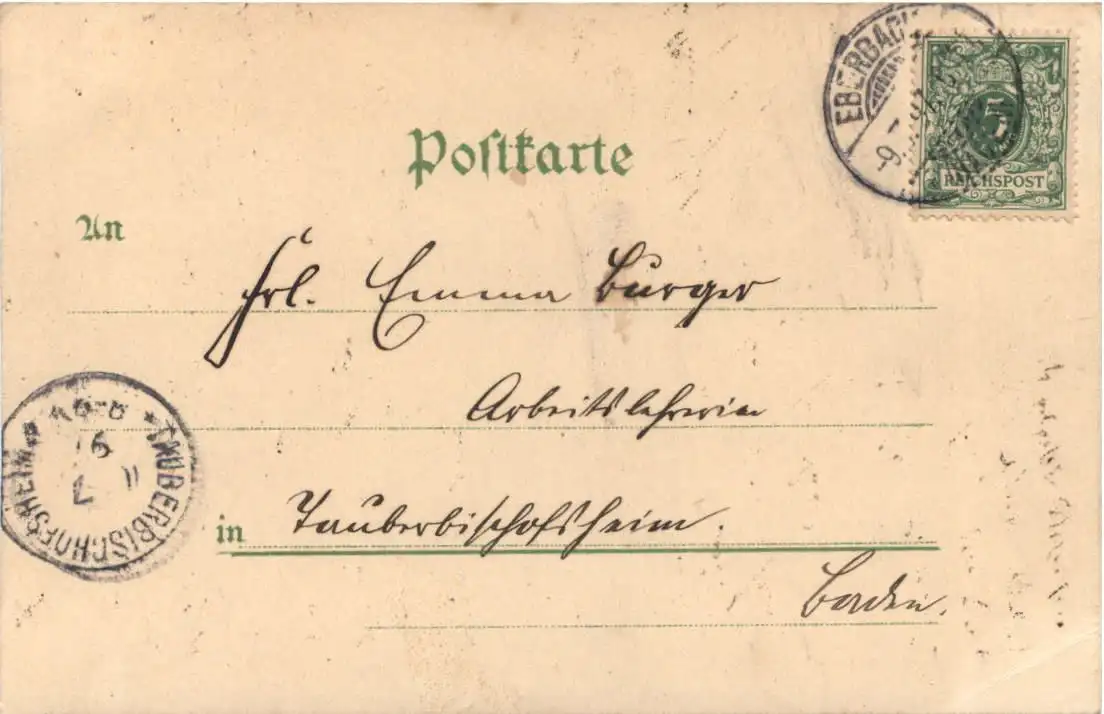 Postkarte
EBERBACH
5
REICHSPOST
An
Frl. Emma Bürger
Arbeitslehrerin
TAUBERBISCHOFSHEIM
in Tauberbischofsheim.
Baden.